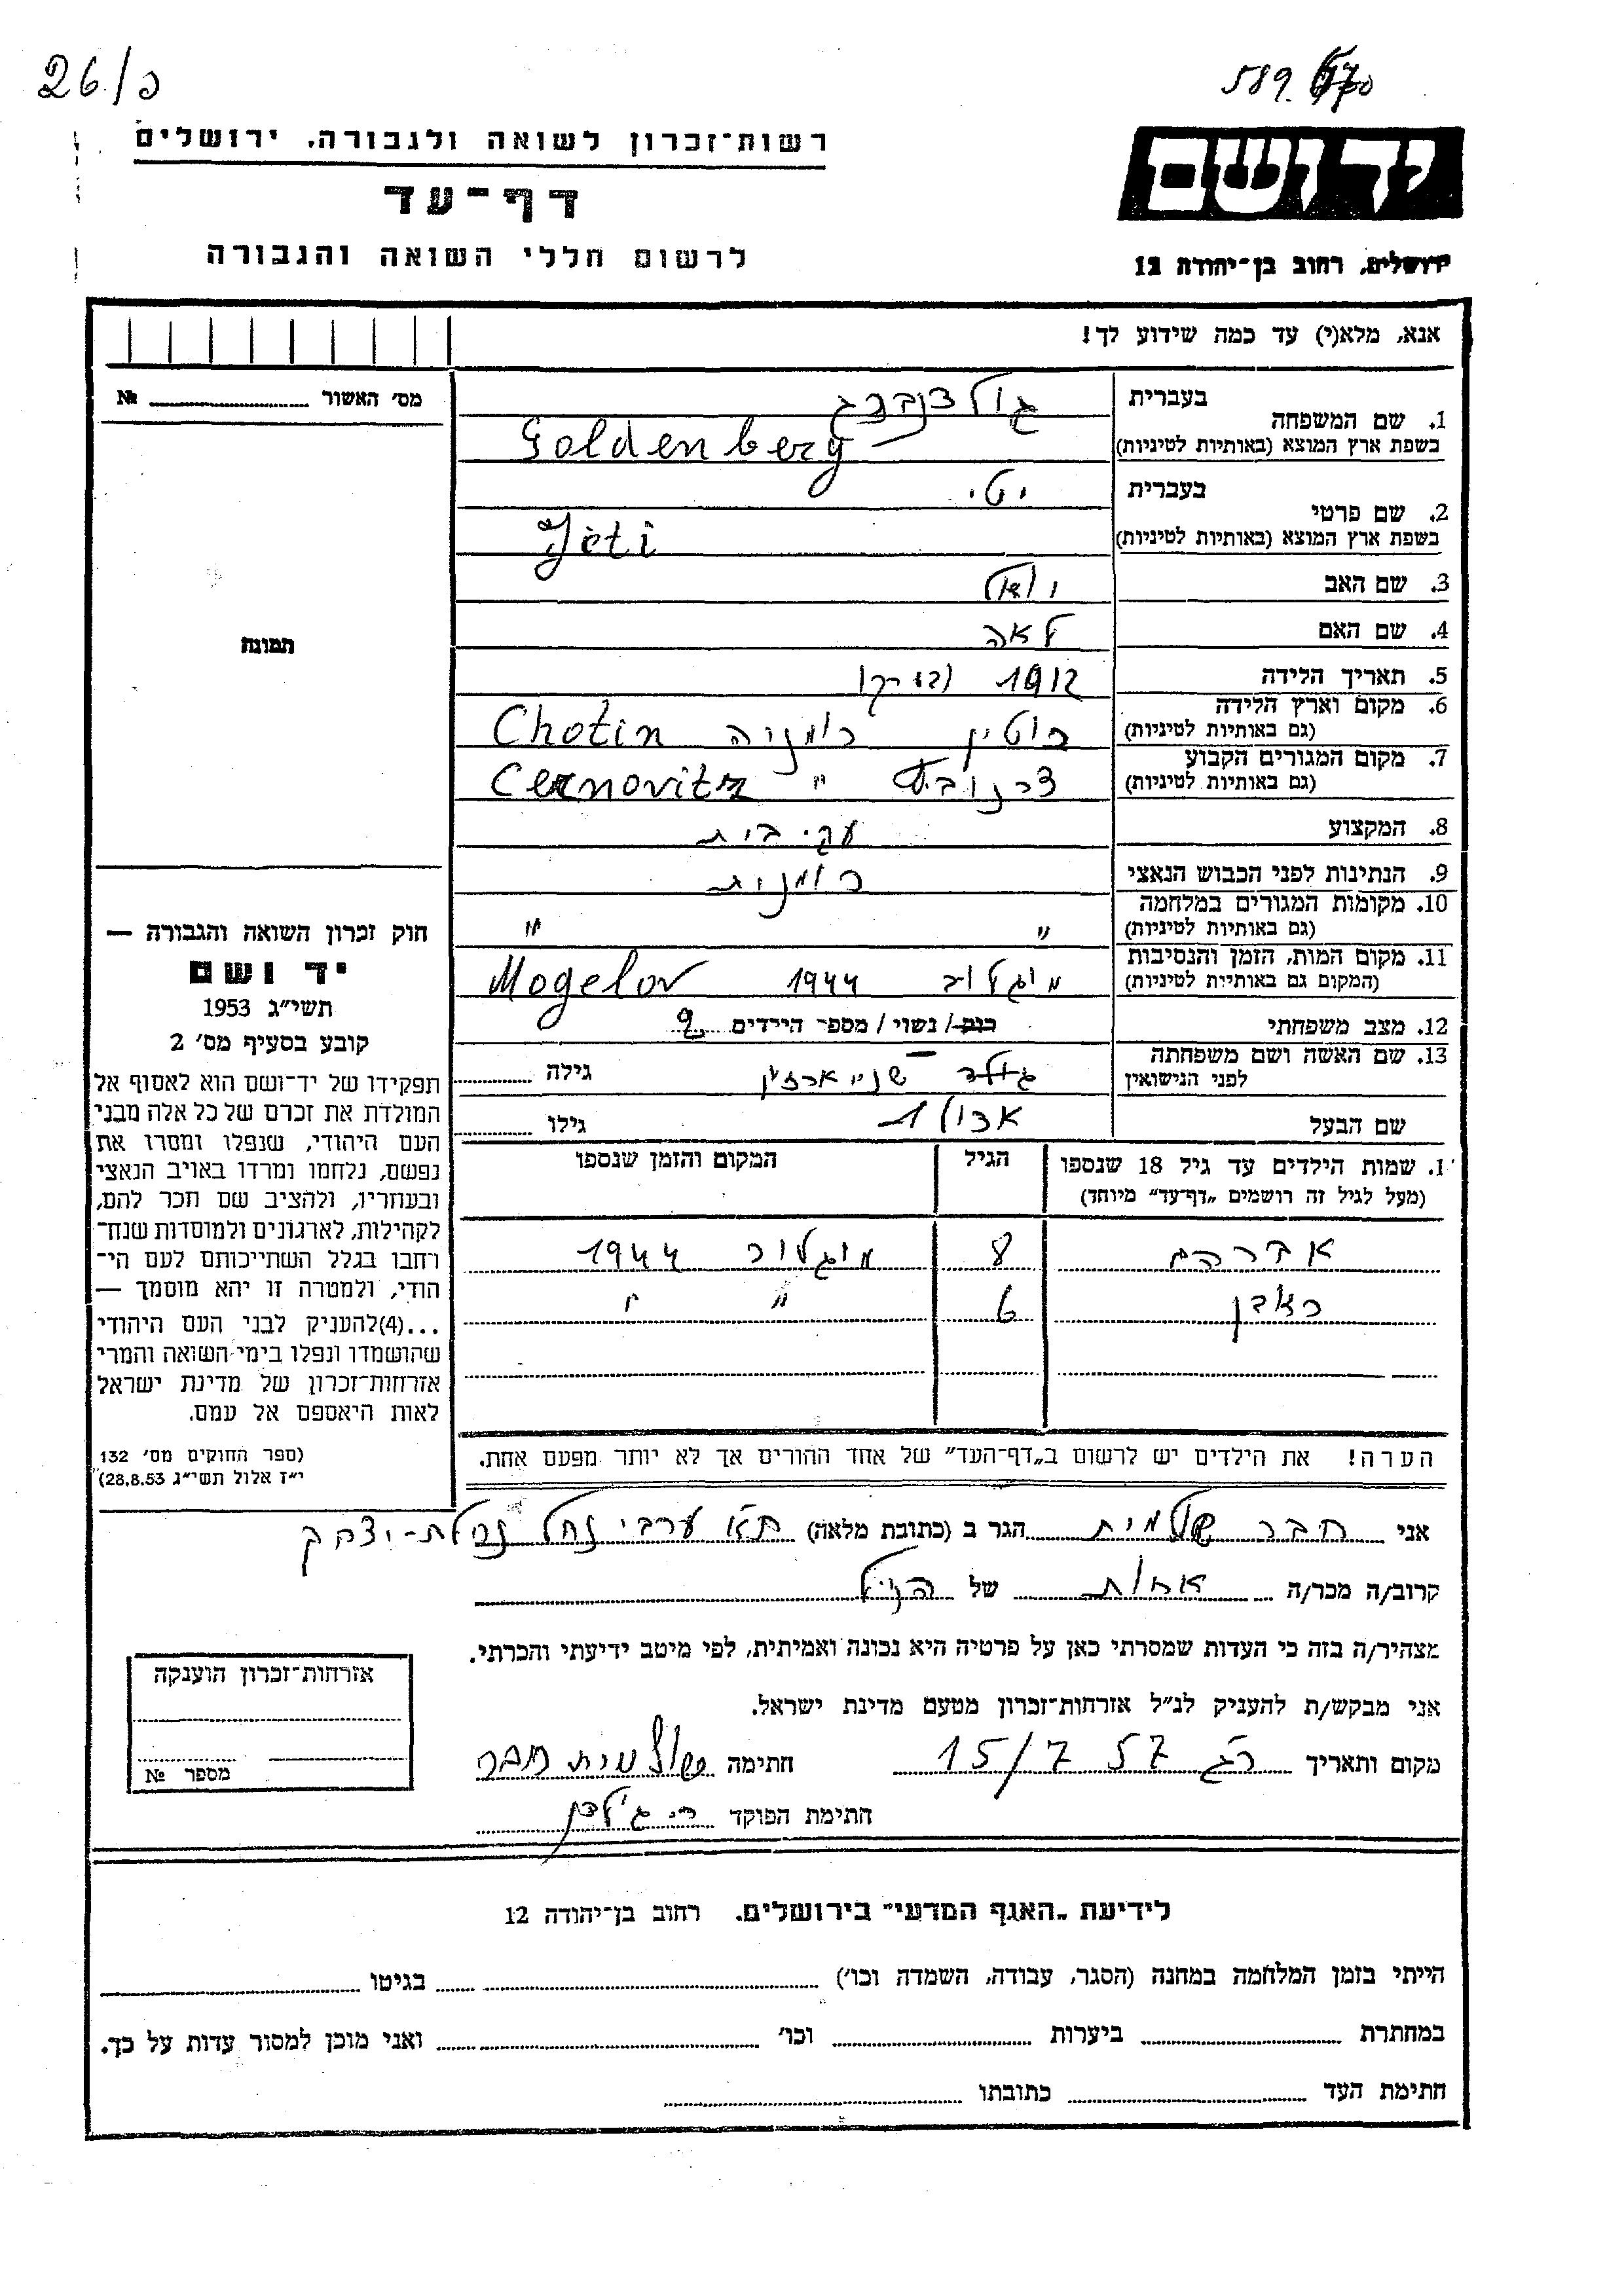 26/כ
589.
רשות־זכרון לשואה ולגבורה, ירושלים
דף־עד
לרשום חללי השואה והגבורה
יד ושם
ירושלים, רחוב בן־יהודה 12
אנא, מלא(י) עד כמה שידוע לך!
מס׳ האשור № 
תמונה
חוק זכרון השואה והגבורה —
יד ושם
תשי״ג 1953
קובע בסעיף מס׳ 2
תפקידו של יד־ושם הוא לאסוף אל
המולדת את זכרם של כל אלה מבני
העם היהודי, שנפלו ומסרו את
נפשם, נלחמו ומרדו באויב הנאצי
ובעוזריו, ולהציב שם וזכר להם,
לקהילות, לארגונים ולמוסדות שנח־
רבו בגלל השתייכותם לעם הי־
הודי, ולמטרה זו יהא מוסמך —
...(4)להעניק לבני העם היהודי
שהושמדו ונפלו בימי השואה והמרי
אזרחות־זכרון של מדינת ישראל
לאות היאספם אל עמם.
(ספר החוקים מס׳ 132
י״ז אלול תשי״ג 28.8.53)
1. שם המשפחה
בעברית גולדנברג
בשפת ארץ המוצא (באותיות לטיניות) Goldenberg
2. שם פרטי
בעברית יטי
בשפת ארץ המוצא (באותיות לטיניות) Jeti
3. שם האב יואל
4. שם האם לאה
5. תאריך הלידה 1912
6. מקום וארץ הלידה (גם באותיות לטיניות) חוטין רומניה Chotin
7. מקום המגורים הקבוע (גם באותיות לטיניות) צרנוביץ " Cernovitz
8. המקצוע עק. בית
9. הנתינות לפני הכבוש הנאצי רומנית
10. מקומות המגורים במלחמה (גם באותיות לטיניות) " "
11. מקום המות, הזמן והנסיבות (המקום גם באותיות לטיניות) מוגלוב 1944 Mogelov
12. מצב משפחתי רווק/ נשוי/ מספר הילדים 2
13. שם האשה ושם משפחתה לפני הנישואין גולד גילה
שם הבעל אדולף גילו
1. שמות הילדים עד גיל 18 שנספו (מעל לגיל זה רושמים „דף־עד״ מיוחד) הגיל המקום והזמן שנספו
אברהם 8 מוגלוב 1944
ראובן 6 " "
הערה! את הילדים יש לרשום ב„דף־העד״ של אחד ההורים אך לא יותר מפעם אחת.
אני חבר שולמית הגר ב (כתובת מלאה) ת״א ערבי נחל נחלת-יצחק
קרוב/ה מכר/ה אחות של הנ״ל
מצהיר/ה בזה כי העדות שמסרתי כאן על פרטיה היא נכונה ואמיתית, לפי מיטב ידיעתי והכרתי.
אני מבקש/ת להעניק לנ״ל אזרחות־זכרון מטעם מדינת ישראל.
מקום ותאריך ר״ג 15/7 57 חתימה שולמית חבר
חתימת הפוקד
אזרחות־זכרון הוענקה
מספר №
לידיעת „האגף המדעי״ בירושלים. רחוב בן־יהודה 12
הייתי בזמן המלחמה במחנה (הסגר, עבודה, השמדה וכו׳) בגיטו
במחתרת ביערות וכו׳ ואני מוכן למסור עדות על כך.
חתימת העד כתובתו